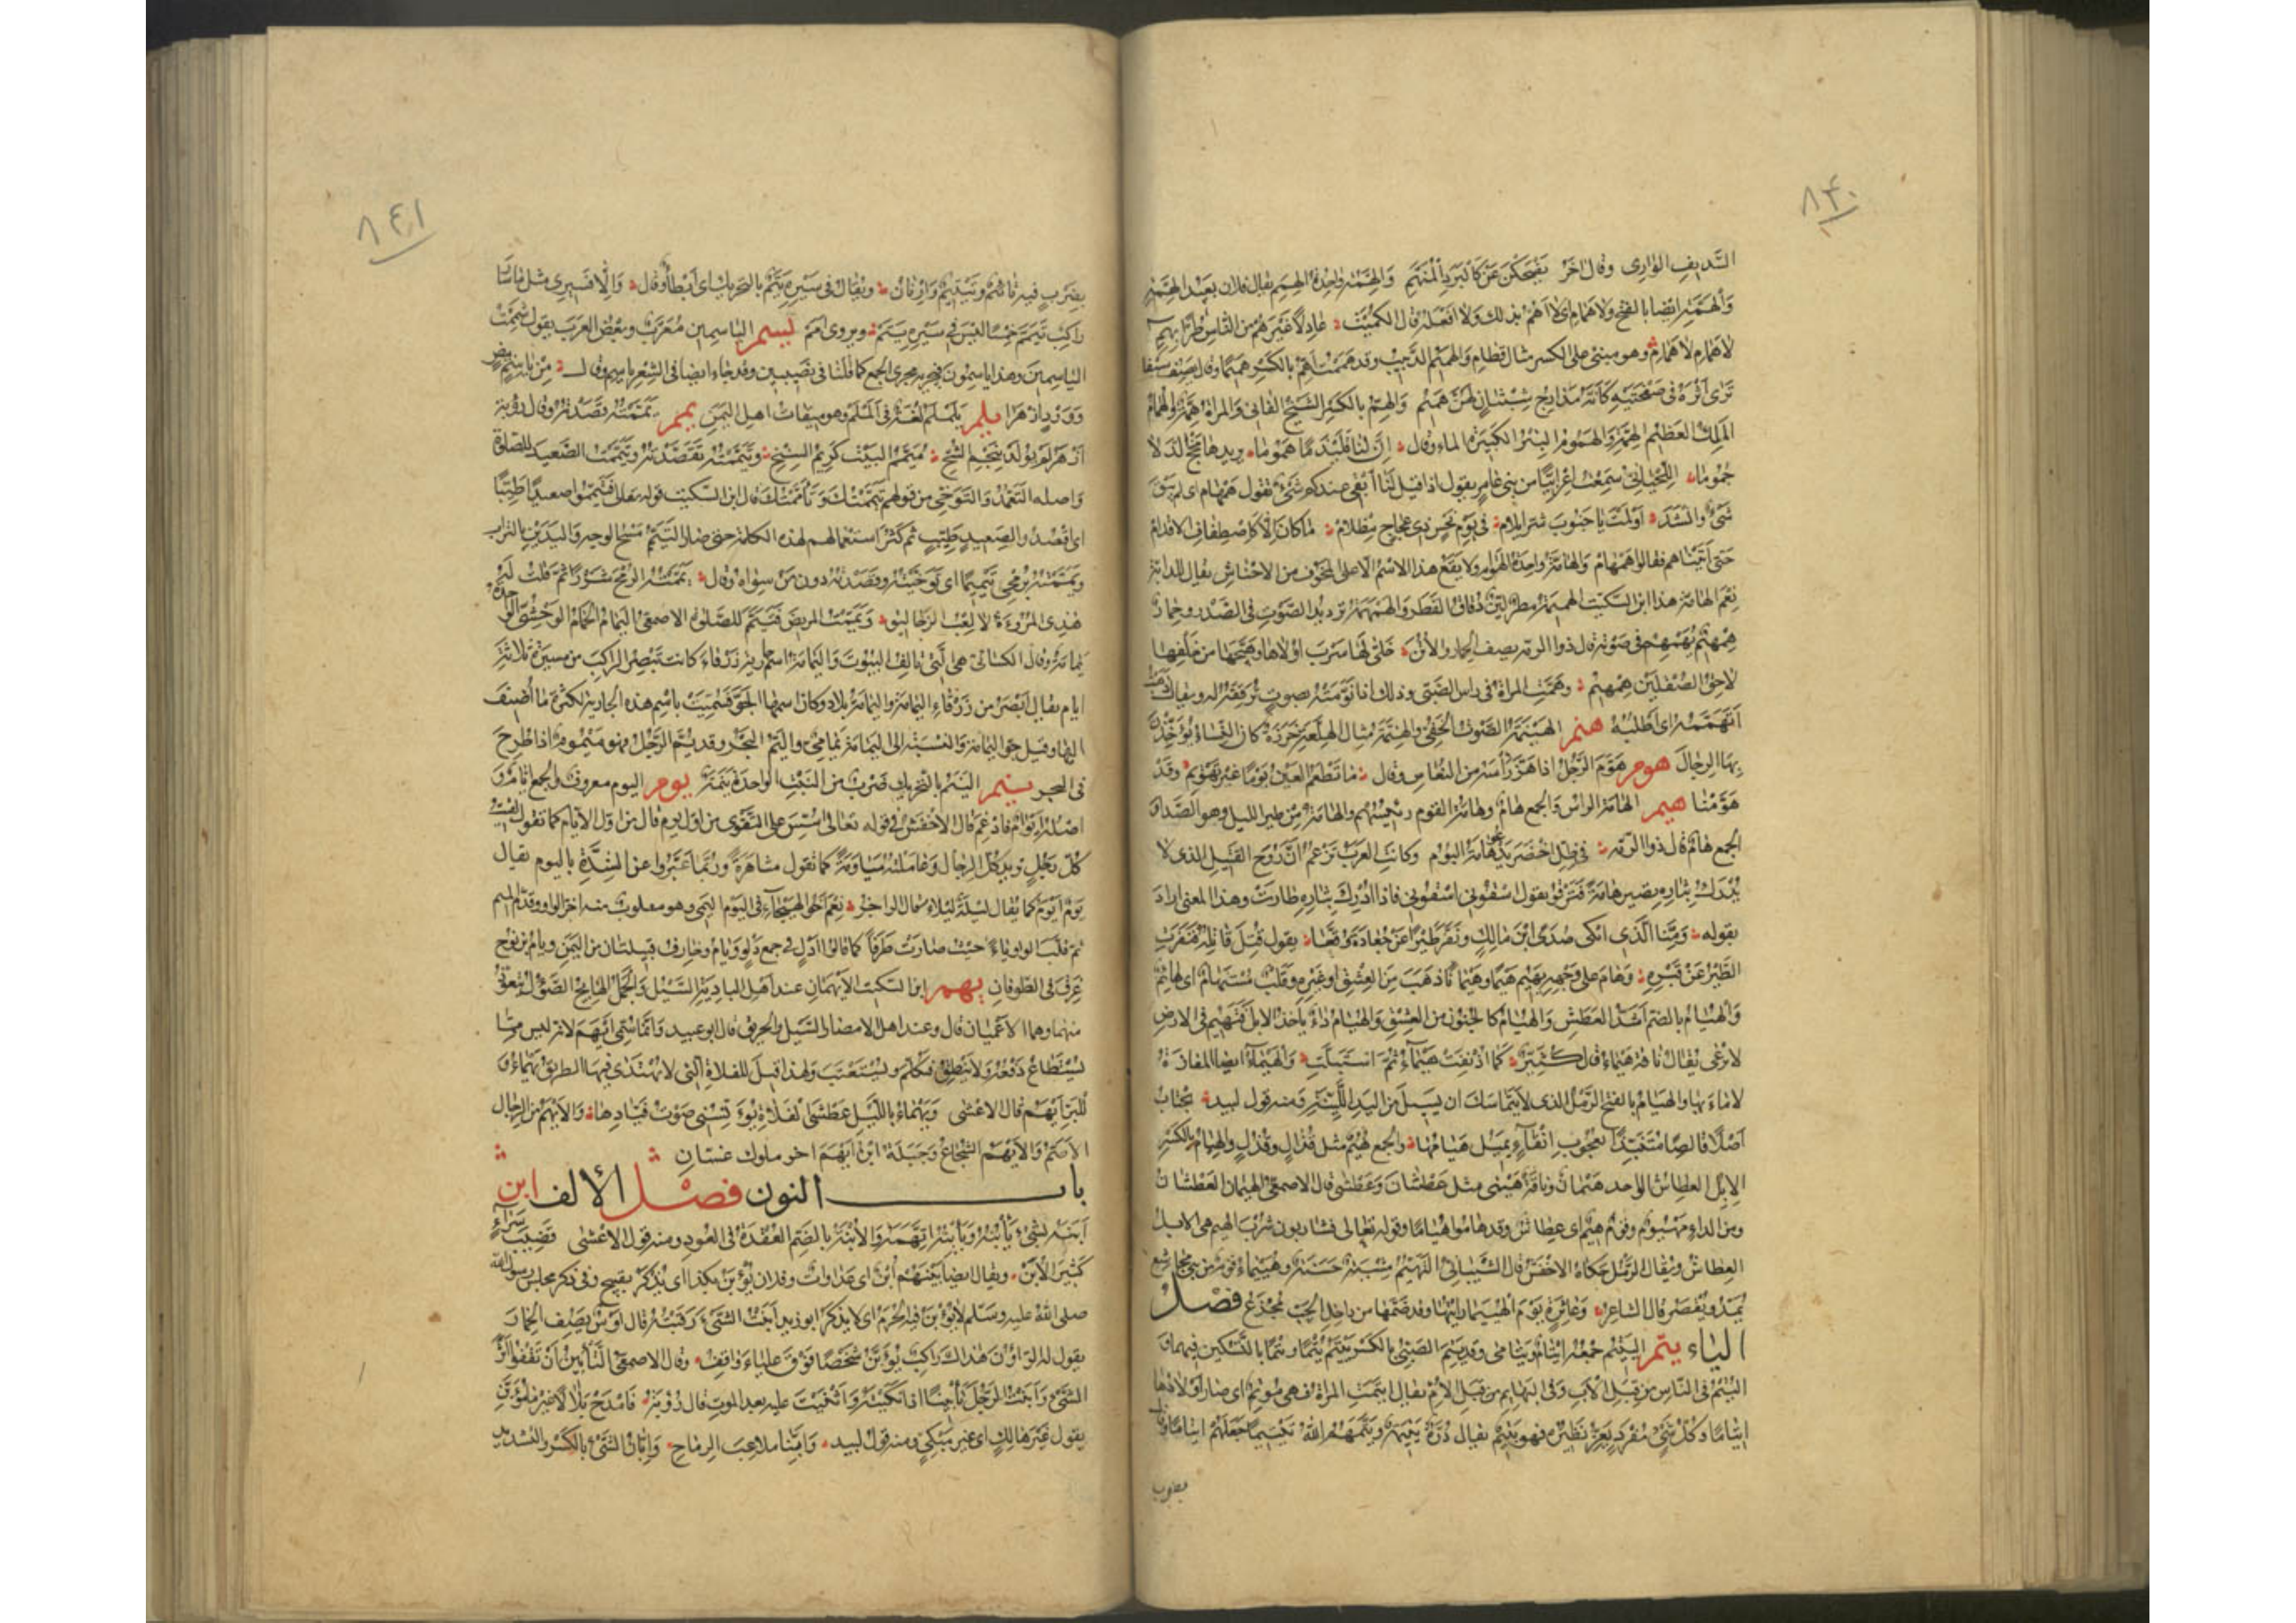 ٨٤٠
السَّديف الواري وقال آخر يضحكن عن كالبرد المنهمّ والهمّة واحدة الهمم يقال فلان بعيد الهمّة
والهمّة ايضا بالفتح ولا همام اى لا اهمّ بذلك ولا افعله قال الكميت عادلا غيرهم من الناس طرّا بهم
لا همام لا همام وهو مبنى على الكسر مثال قطام والهميم الدبيب وقد هممت اهمّ بالكسر هميما وقال يصف سيفا
ترى اثره فى صفحتيه كانه مدارج شبثان لهنّ هميم والهمّ بالكسر الشيخ الفانى والمرأة همّة والهمام
الملك العظيم الهمّة والهموم البئر الكثيرة الماء وقال انّ لنا قليذما هموما يزيدها مخج الدلا
جموما اللحيانى سمعت اعرابيا من بنى عامر يقول اذا قيل لنا أبقى عندكم شىء نقول همهام اى لم يبق
شىء وانشد اولمت يا خنوت شرّ ايلام فى يوم نحس ذى عجاج مظلام ما كان الا كاصطفاق الاقدام
حتى اتيناهم فقالوا همهام والهامّة واحدة الهوامّ ولا يقع هذا الاسم الا على المخوف من الاحناش يقال للدابة
نعم الهامّة هذا ابن السكيت الهميمة مطر ليّن دقاق القطر والهمهمة ترديد الصوت فى الصدر وحمار
همهيم يهمهم فى صوته قال ذو الرمة يصف الحمار والأتن خلّى لها سرب اولاها وهيّجها من خلفها
لاحق الصقلين همهيم وهمّمت المرأة فى راس الصبى وذلك اذا نوّمته بصوت ترققه له ويقال
اتهمّمه اى اطلبه هنم الهينمة الصوت الخفى والهنّمة مثال الهلّعة خرزة كان النساء يؤخّذن
بها الرجال هوم هوّم الرجل اذا هزّ رأسه من النعاس وقال ما تطعم العين نوما غير تهويم وقد
هوّمنا هيم الهامة الراس والجمع هام وهامة القوم رئيسهم والهامة من طير الليل وهو الصدا و
الجمع هام قال ذو الرمة فى ظلّ اخضر يدعو هامه البوم وكانت العرب تزعم انّ روح القتيل الذى لا
يدرك بثاره يصير هامة فتزقو يقول اسقونى اسقونى فاذا أُدرك بثاره طارت وهذا المعنى اراد
بقوله ومنّا الذى ابكى صُدىّ ابن مالك ونفّر طيرا عن جعادة وقّعا يقول قتل قاتله فنفرت
الطير عن قبره وهام على وجهه يهيم هيما وهيمانا ذهب من العشق او غيره وقلب مستهام اى هائم
والهيام بالضم اشدّ العطش والهيام كالجنون من العشق والهيام داء ياخذ الابل فتهيم فى الارض
لا ترعى يقال ناقة هيماء قال كثيّر كما ادنفت هيماء ثمّ استبلّت والهيماء ايضا المفازة
لا ماء بها والهيام بالفتح الرمل الذى لا يتماسك ان يسيل من اليد للينه ومنه قول لبيد يجتاب
اصلا قالصا متنبّذا بعجوب انقاء يميل هيامها والجمع هيم مثل قذال وقذل والهيام بالكسر
الابل العطاش الواحد هيمان وناقة هيمى مثل عطشان وعطشى قال الاصمعى الهيمان العطشان
ومن الداء مهيوم وقوم هيم اى عطاش وقد هاموا هياما وقوله تعالى فشاربون شرب الهيم هى الابل
العطاش ويقال الرمل حكاه الاخفش قال الشيبانى التهيّم مشية حسنة وهييماء قوم من بنى مجاشع
يمدّ ويقصر قال الشاعر وعاثرة يوم الهييما رايتها وقد ضمّها من داخل الحبّ مجزع فصل
الياء يتم اليتيم جمعه ايتام ويتامى وقد يتم الصبى بالكسر ييتم يُتما ويَتما بالتسكين فيهما و
اليتم فى الناس من قِبل الاب وفى البهايم من قبل الام يقال ايتمت المرأة فهى موتم اى صار اولادها
ايتاما وكل شىء مفرد يعزّ نظيره فهو يتيم يقال درّة يتيمة ويتّمهم الله تيتيما جعلهم ايتاما وقال
يضرب
٨٤١
يضرب فيه مأتم وتيتيم وارنان ويقال فى سيره يتم بالتحريك اى ابطأ وقال والا فسيرى مثل ما سار
راكب تيمّم خمسا ليس فى سيره يتم ويروى امم يسم الياسمين معرّب وبعض العرب يقول شممت
الياسمين وهذا ياسمون فيجريه مجرى الجمع كما قلنا فى نصيبين وقد جاء ايضا فى الشعر ياسم وقال من ياسم بيض
وورد ازهرا يلم يلملم لغة فى الملم وهو ميقات اهل اليمن يمم يمّمته قصدته وقال رؤبة
ازهر لم يولد بنجم الشحّ ميمّم البيت كريم السنخ وتيمّمته تقصّدته وتيمّمت الصعيد للصلوة
واصله التعمّد والتوخّى من قولهم تيمّمتك وتأمّمتك قال ابن السكيت قوله تعالى فتيمّموا صعيدا طيبا
اى اقصدوا الصعيد طيّب ثم كثر استعمالهم لهذه الكلمة حتى صار التيمّم مسح الوجه واليدين بالتراب
ويمّمته برمحى تيميما اى توخّيته وقصدته دون من سواه وقال يمّمته الرمح شزرا ثمّ قلت له
هذى المروءة لا لعب الزحاليق ويمّمت المريض فتيمّم للصلوة الاصمعى اليمام الحمام الوحشى الواحدة
يمامة وقال الكسائى هى التى تالف البيوت واليمامة اسم جارية زرقاء كانت تبصر الراكب من مسيرة ثلاثة
ايام يقال ابصر من زرقاء اليمامة واليمامة بلاد وكان اسمها الجوّ فسمّيت باسم هذه الجارية لكثرة ما اضيف
اليها وقيل جوّ اليمامة والنسبة الى اليمامة يمامىّ واليمّ البحر وقد يُمّ الرجل فهو ميموم اذا طرح
فى البحر ينم الينم بالتحريك ضرب من النبت الواحدة ينمة يوم اليوم معروف والجمع ايام و
اصله ايوام فادغم قال الاخفش فى قوله تعالى اسّس على التقوى من اول يوم قال من اول الايام كما تقول لقيت
كلّ رجل تريد كلّ الرجال وعاملته مياومة كما تقول مشاهرة وربما عبّروا عن الشدّة باليوم يقال
يوم ايوم كما يقال ليلة ليلاء قال الراجز نعم اخو الهيجاء فى اليوم اليمى وهو مقلوب منه اخّر الواو وقدّم الميم
ثم قلبت الواو ياء حيث صارت طرفا كما قالوا ادلٍ فى جمع دلو ويام وخارف قبيلتان من اليمن ويام بن نوح
غرق فى الطوفان يهم ابن السكيت الايهمان عند اهل البادية السيل والجمل الهايج الصؤول يتعوّذ
منهما وهما الاعميان قال وعند اهل الامصار السيل والحريق قال ابو عبيد وانما سمّى ايهم لانه ليس مما
يستطاع دفعه ولا ينطق فيكلّم ويستعتب ولهذا قيل للفلاة التى لا يهتدى فيها الطريق يهماء و
للبرّ ايهم قال الاعشى ويهماء بالليل عطشى الفلاة يؤنسنى صوت فيّادها والايهم من الرجال
الاصمّ والايهم الشجاع وجبلة ابن ايهم اخر ملوك غسان
باب النون فصل الألف ابن
ابنه بشىء يأبنه ويأبنه اتهمه والأبنة بالضم العقدة فى العود ومنه قول الاعشى قضيب سراء
كثير الأبن ويقال ايضا بينهم أبن اى عداوات وفلان يؤبن بكذا اى يذكر بقبيح وفى ذكر مجلس رسول الله
صلى الله عليه وسلم لا تؤبن فيه الحرم اى لا يذكر ابو زيد ابّنت الشىء رقبته قال اوس يصف الحمار
يقول له الراؤن هذاك راكب يؤبّن شخصا فوق علياء واقف وقال الاصمعى التأبين ان تقفو اثر
الشىء وابّنت الرجل تأبينا اذا بكيته واثنيت عليه بعد الموت قال رؤبة فامدح بلالا غير ما مؤبّن
يقول غير هالك اى غير مبكىّ ومنه قول لبيد وابّنا ملاعب الرماح وابّان الشىء بالكسر والتشديد